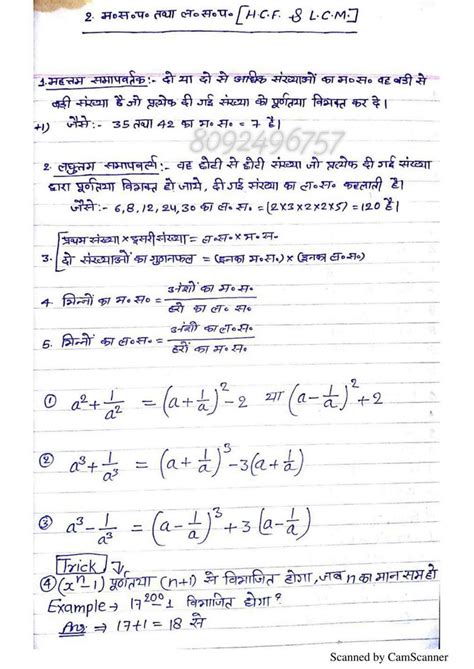 2. म॰स॰प॰ तथा ल॰स॰प॰ [H.C.F. & L.C.M.]
1. महत्तम समापवर्तक :- दो या दो से अधिक संख्याओं का म॰स॰ वह बड़ी से
बड़ी संख्या है जो प्रत्येक दी गई संख्या को पूर्णतया विभक्त कर दे।
जैसे :- 35 तथा 42 का म॰स॰ = 7 है।
8092496757
2. लघुत्तम समापवर्त्य :- वह छोटी से छोटी संख्या जो प्रत्येक दी गई संख्या
द्वारा पूर्णतया विभक्त हो जाये, दी गई संख्या का ल॰स॰ कहलाती है।
जैसे :- 6, 8, 12, 24, 30 का ल॰स॰ = (2×3×2×2×5) = 120 है।
प्रथम संख्या × दूसरी संख्या = ल॰स॰ × म॰स॰
3. दो संख्याओं का गुणनफल = (इनका म॰स॰) × (इनका ल॰स॰)
4. भिन्नों का म॰स॰ = अंशों का म॰स॰ / हरों का ल॰स॰
5. भिन्नों का ल॰स॰ = अंशों का ल॰स॰ / हरों का म॰स॰
① a² + 1/a² = (a + 1/a)² - 2 या (a - 1/a)² + 2
② a³ + 1/a³ = (a + 1/a)³ - 3(a + 1/a)
③ a³ - 1/a³ = (a - 1/a)³ + 3(a - 1/a)
Trick
④ (xⁿ - 1) पूर्णतया (n+1) से विभाजित होगा, जब n का मान सम हो
Example → 17²⁰⁰ - 1 विभाजित होगा?
Ans → 17+1 = 18 से
Scanned by CamScanner